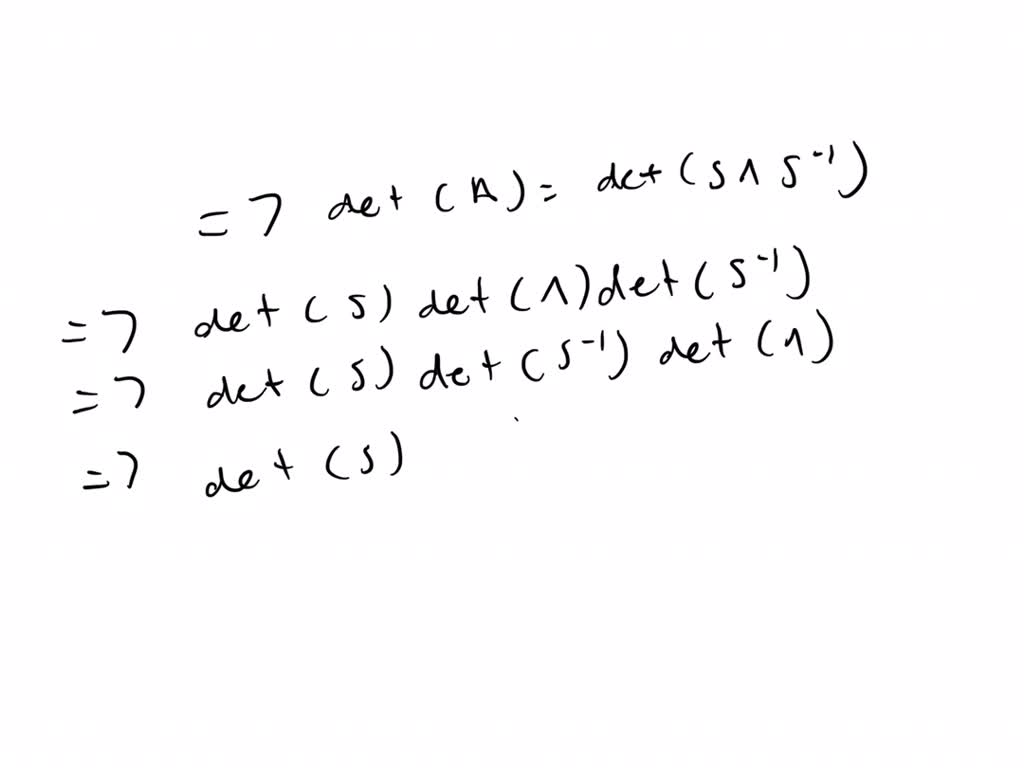 => det (A) = det (S Λ S⁻¹)
=> det (S) det (Λ) det (S⁻¹)
=> det (S) det (S⁻¹) det (Λ)
=> det (S)